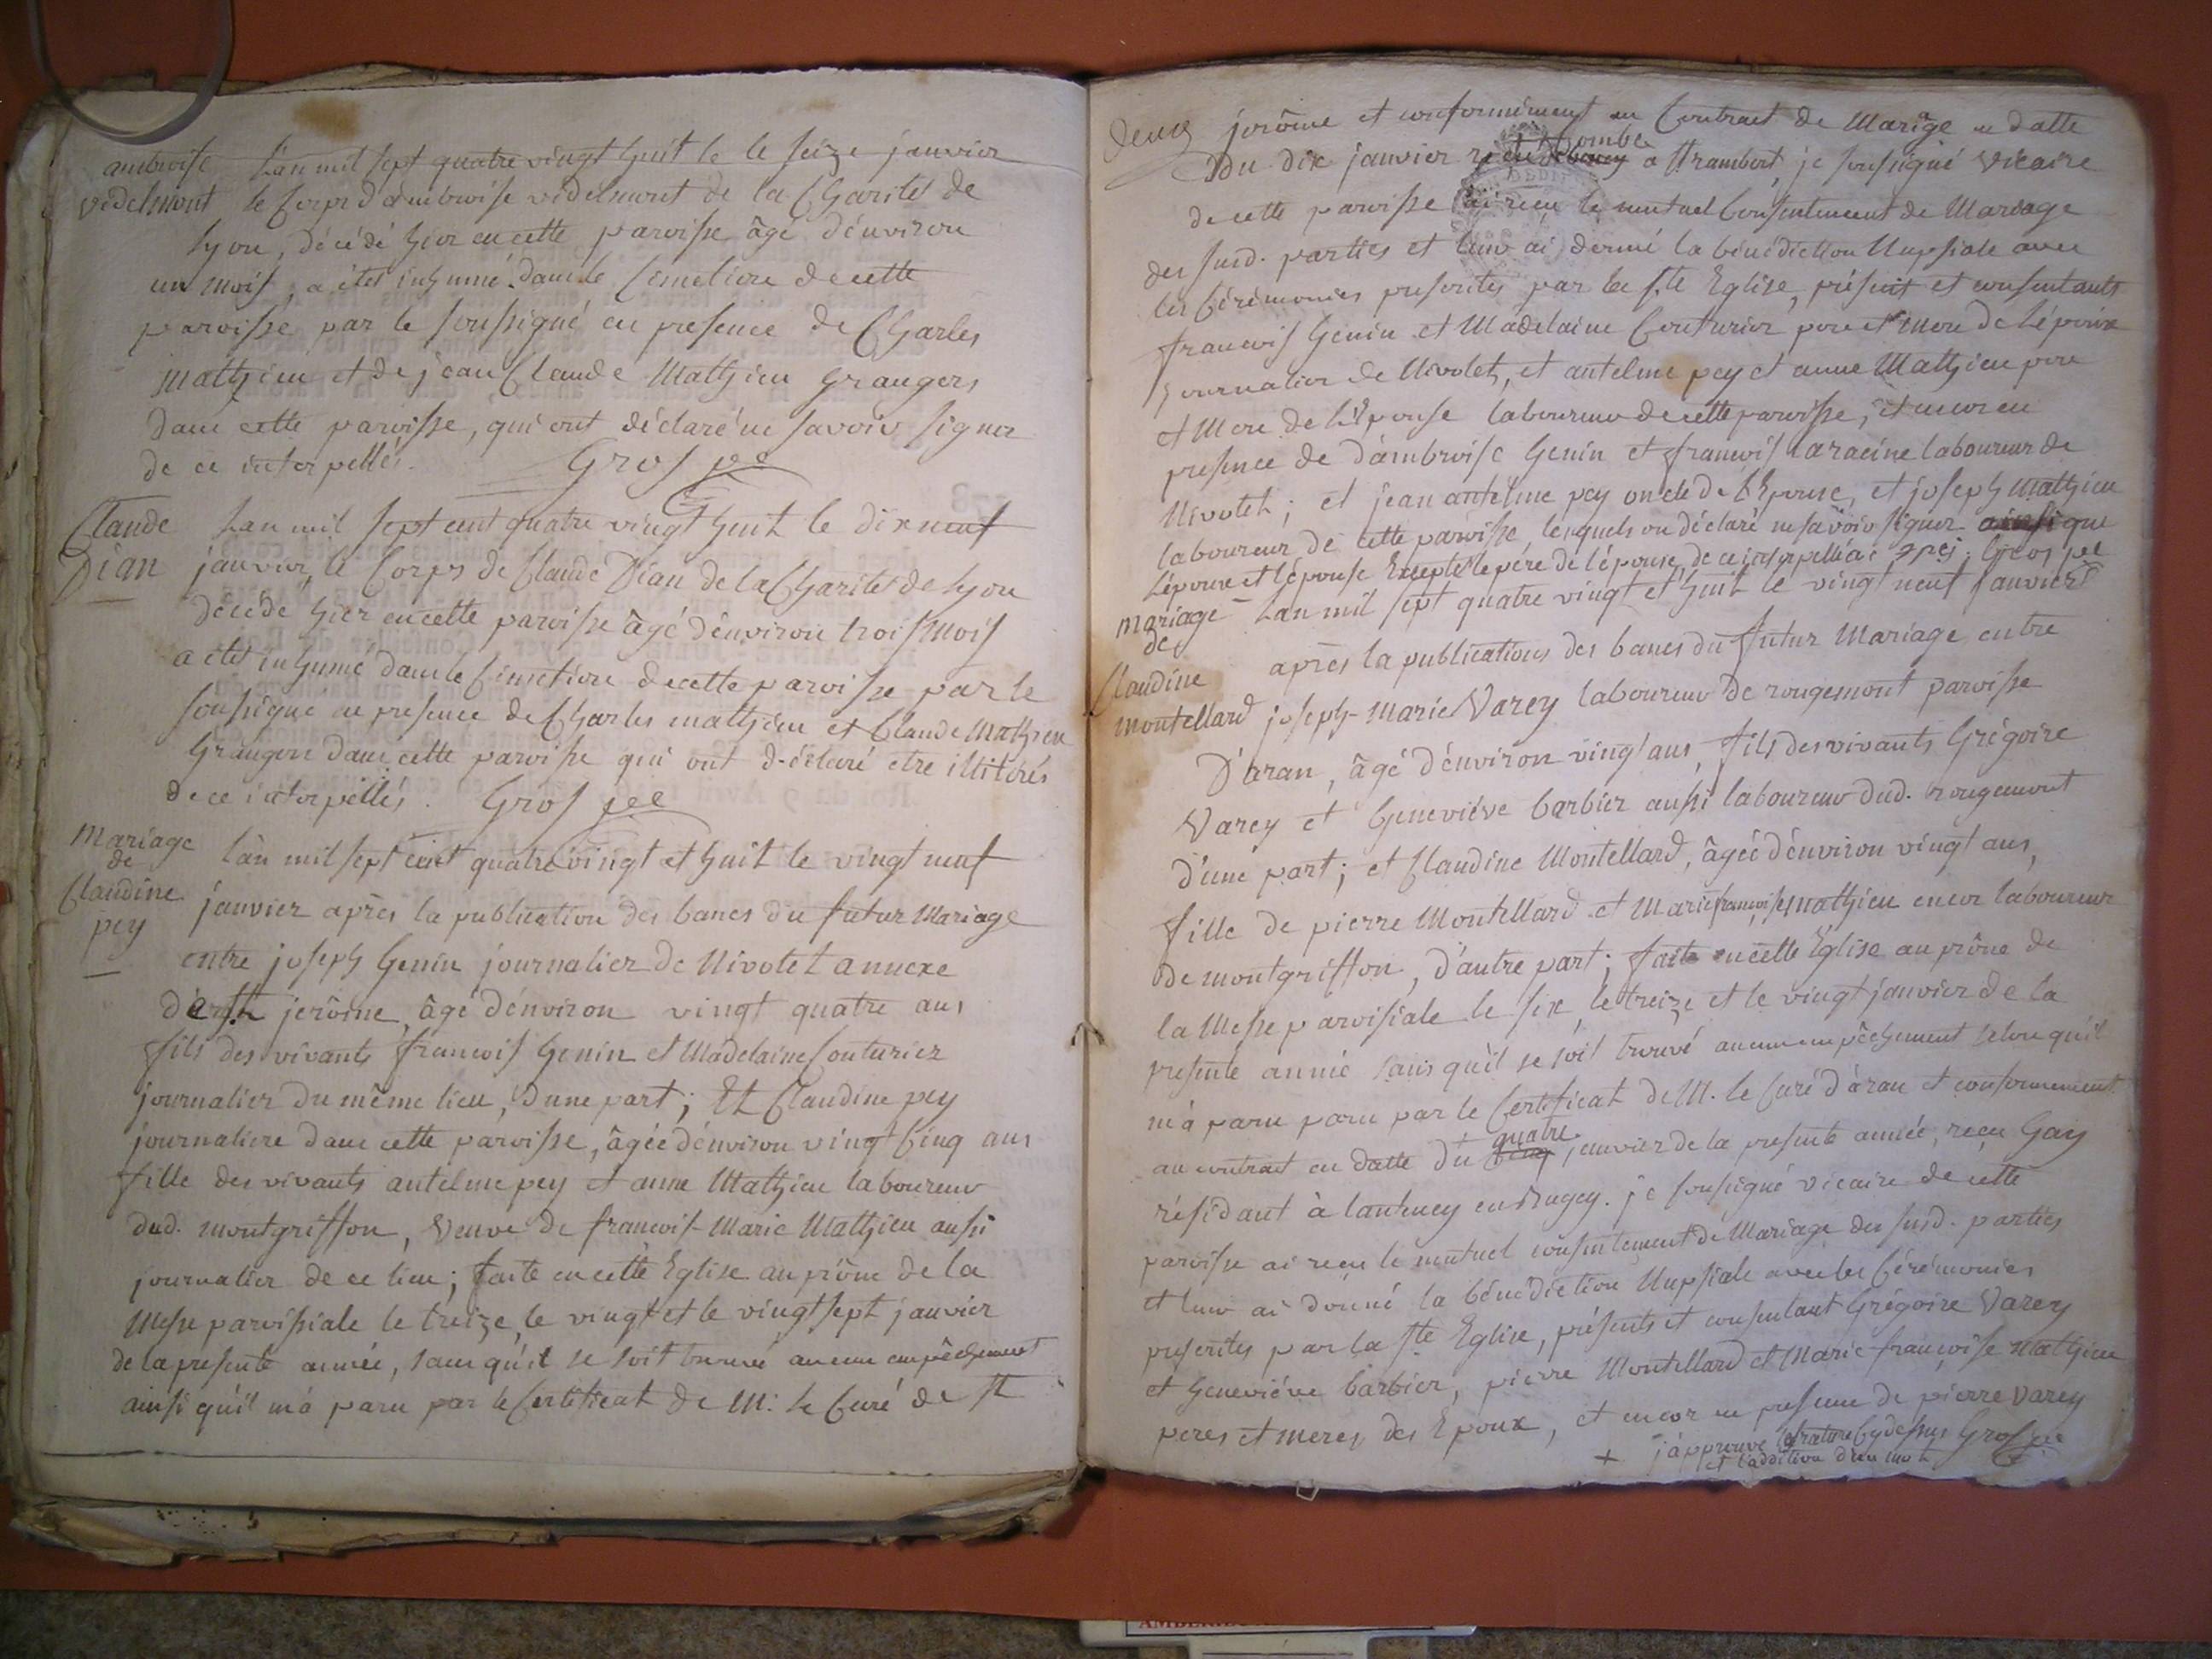 ambroise L'an mil sept quatre vingt huit le le seize janvier
videlmont le corps d'ambroise videlmont de la Charité de
Lyon, décédé hier en cette paroisse âgé d'environ
un mois, a étét inhumé dans le Cimetiere de cette
paroisse par le soussigné en presence de Charles
Mathieu et de jean Claude Mathieu Grangers
dans cette paroisse, qui ont déclaré ne savoir signer
de ce interpellés. Gros pre
Claude L'an mil sept cent quatre vingt huit le dix neuf
Dian janvier, le Corps de Claude Dian de la Charité de Lyon
décédé hier en cette paroisse âgé d'environ trois mois
a étét inhumé dans le Cimetiere de cette paroisse par le
soussigné en presence de Charles mathieu et Claude Mathieu
Grangers dans cette paroisse qui ont déclaré etre illitérés
de ce interpellés. Gros pre
Mariage de Claudine pey
L'an mil sept cent quatre vingt et huit le vingt neuf
janvier après la publication des bancs du futur Mariage
entre joseph Genin journalier de Nivolet annexe
de st jerôme, âgé d'environ vingt quatre ans
fils des vivants francois Genin et Madelaine Couturier
journalier du même lieu, d'une part; Et Claudine pey
journaliere dans cette paroisse, âgée d'environ vingt Cinq ans
fille des vivants antelme pey et anne Mathieu laboureur
dud. montgriffon, veuve de francois-Marie Mathieu aussi
journalier de ce lieu; faite en cette Eglise au prône de la
Messe paroissiale le treize, le vingt et le vingt sept janvier
de la présente année, sans qu'il se soit trouvé aucun empêchement
ainsi qu'il m'a paru par le Certificat de M. le Curé de st
deux jerôme et conformément au Contract de Mariage en datte
Du dix janvier recu Dombe a st rambert, je soussigné Vicaire
de cette paroisse ai recu le mutuel Consentement de Mariage
des susd. parties et leur ai donné la bénédiction Nupsiale avec
les Cérémonies prescrites par la ste Eglise, présent et consentants
francois Genin et Madelaine Couturier pere et Mere de l'époux
journalier de Nivolet, et antelme pey et anne Mathieu pere
et Mere de l'Epouse laboureur de cette paroisse, et encor en
presence de d'ambroise Genin et francois laracine laboureur de
Nivolet; et jean antelme pey oncle de l'Epouse, et joseph mathieu
laboureur de cette paroisse, lesquels on déclaré ne savoir signer ainsi que
L'époux et l'épouse Excepté le pére de l'épouse, de ce interpellé a: pei. Gros pre
Mariage de Claudine montellard
L'an mil sept quatre vingt et huit le vingt neuf janvier
après la publications des bancs du futur Mariage entre
joseph-Marie Varey laboureur de rougemont paroisse
D'aran, âgé d'environ vingt ans, fils des vivants Grégoire
Varey et Geneviéve barbier aussi laboureur dud. rougemont
d'une part; et Claudine Montellard, âgée d'environ vingt ans,
fille de pierre Montellard et Marie françoise Mathieu encor laboureur
de montgriffon, d'autre part; faite en cette Eglise au prône de
la Messe paroissiale le six, le treize et le vingt janvier de la
presente année sans qu'il se soit trouvé aucun empêchement selon qu'il
m'a paru paru par le Certificat de M. le Curé d'aran et conformement
au contract en datte du quatre janvier de la presente année, recu Gay
résidant à lanteney en Bugey. je soussigné vicaire de cette
paroisse ai recu le mutuel consentement de Mariage des susd. parties
et leur ai donné la bénédiction Nupsiale avec les Cérémonies
prescrites par la ste Eglise, présents et consentant Grégoire Varey
et Geneviéve barbier, pierre Montellard et Marie-françoise Mathieu
peres et meres des Epoux, et encor en presence de pierre Varey
+ j'approuve la rature Cydessus Gros pre
et l'addition d'un mot